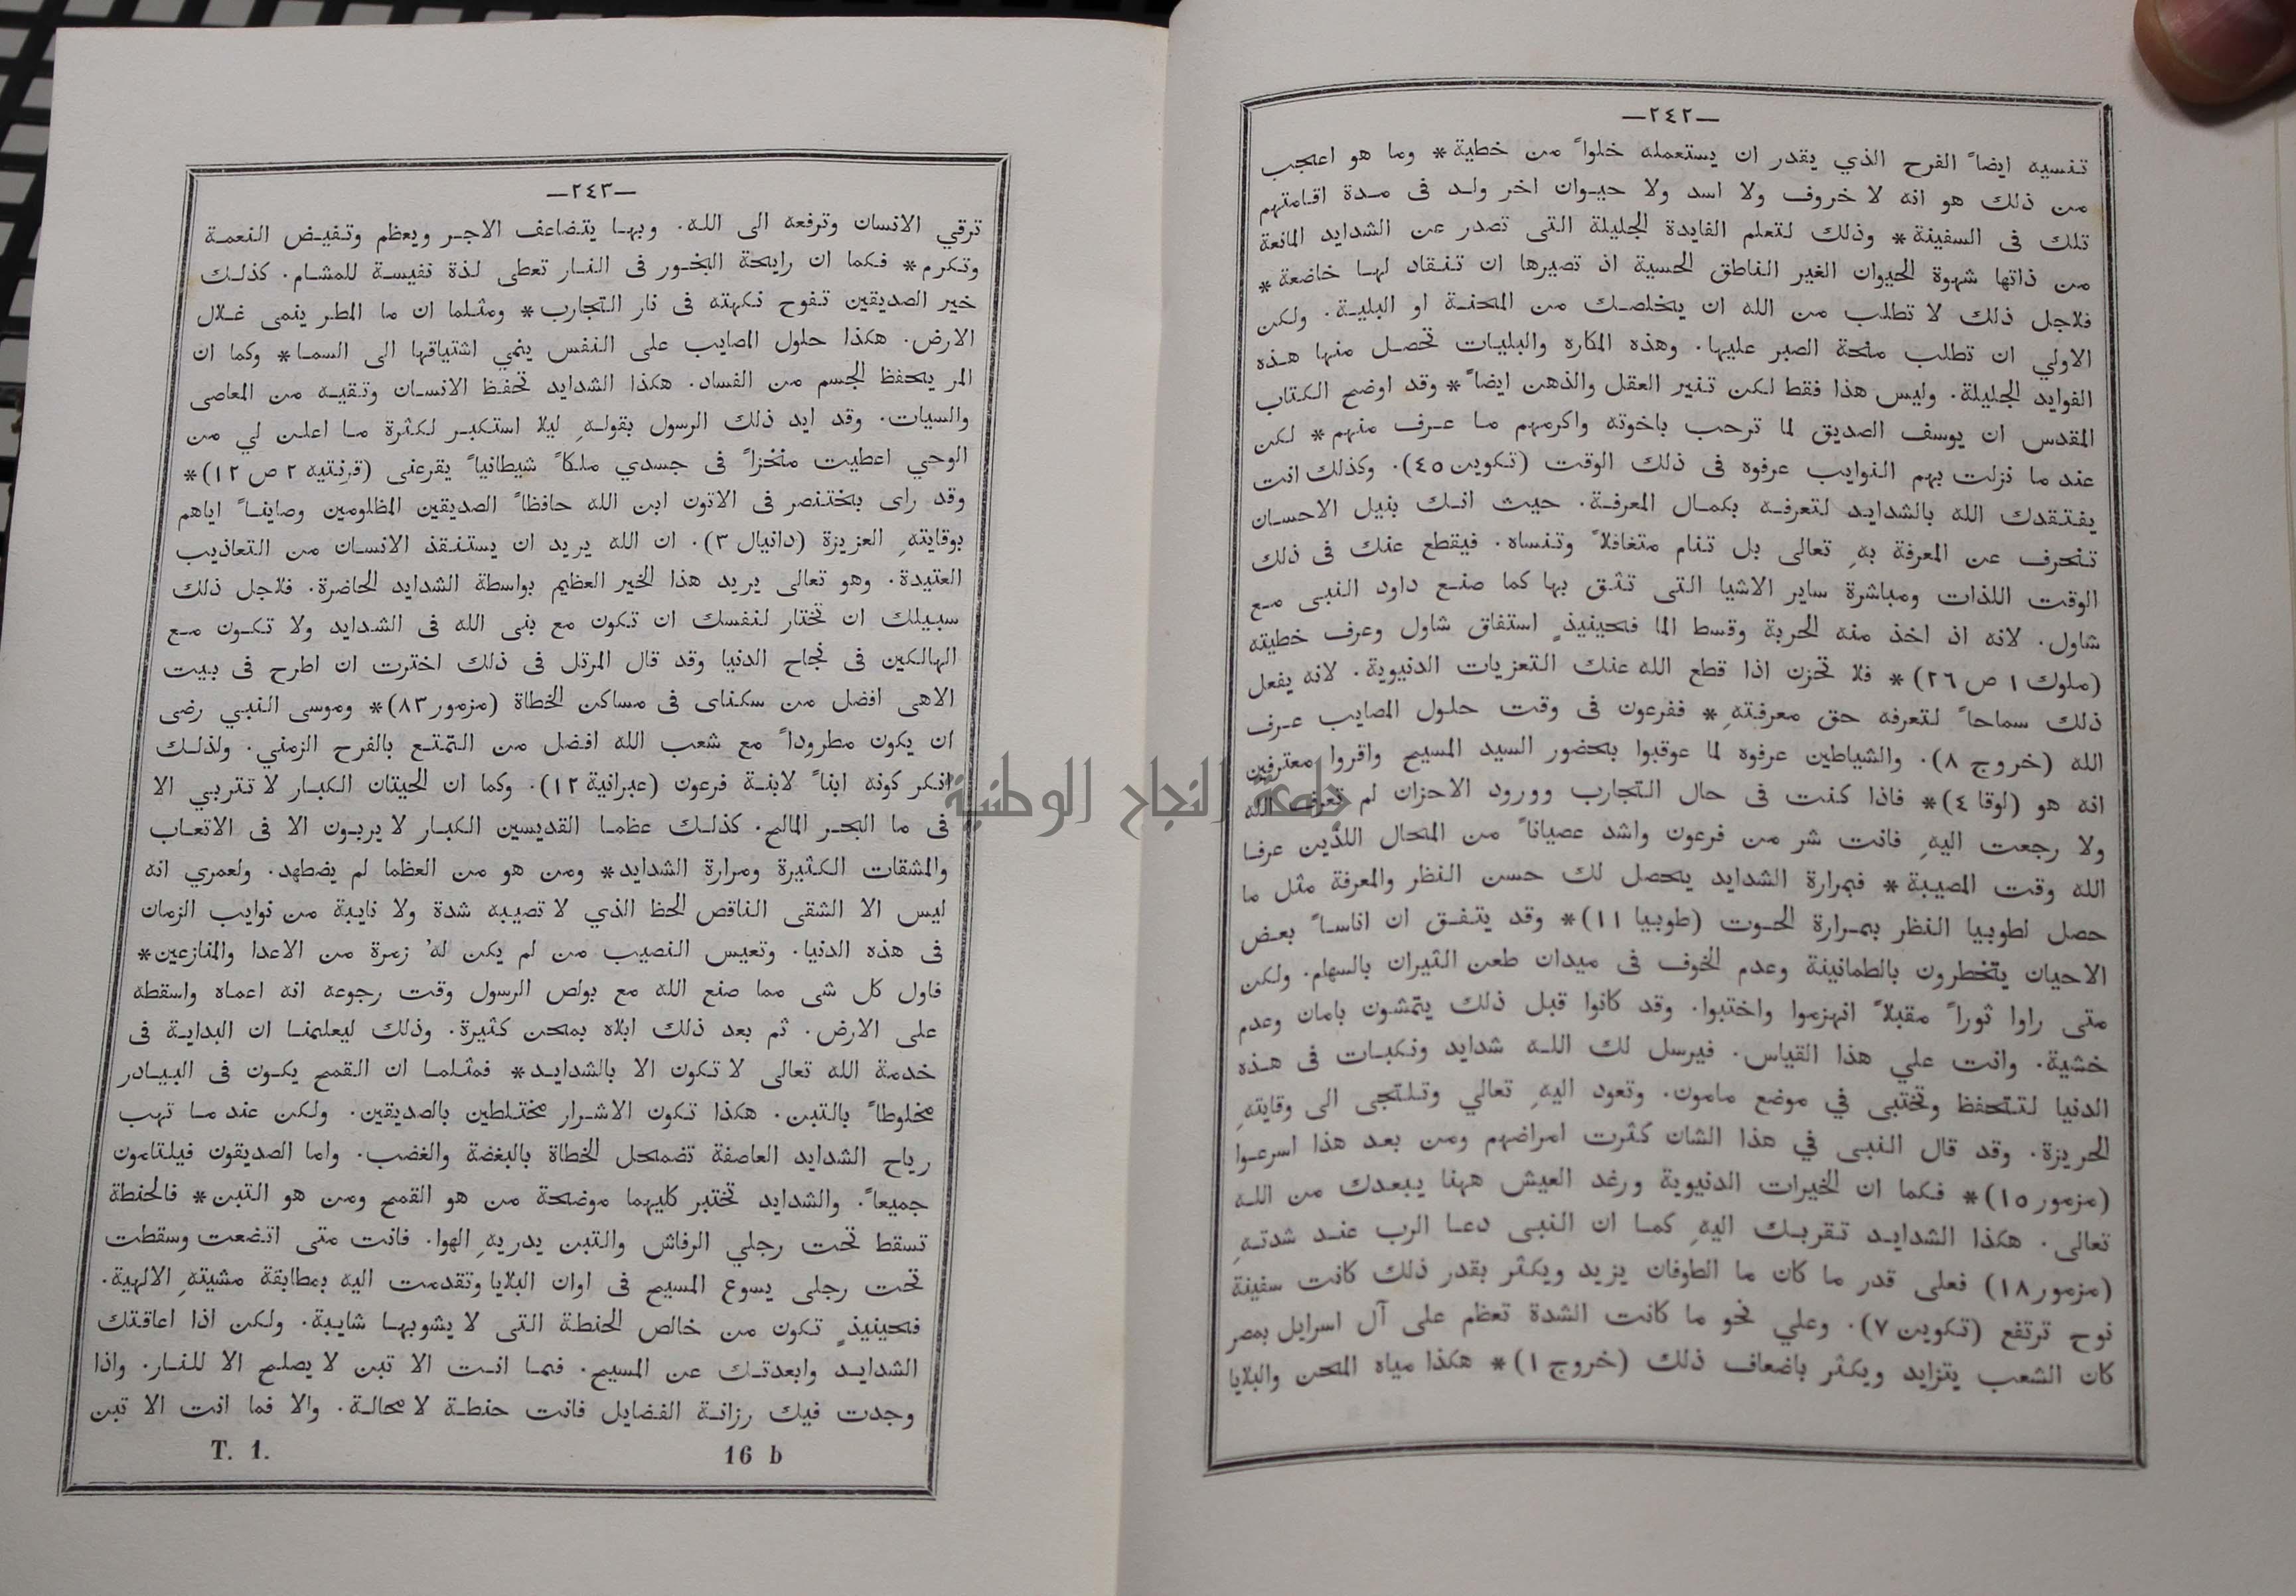 —٢٤٢—
تنسيه ايضاً الفرح الذي يقدر ان يستعمله خلواً من خطية* وما هو اعجب
من ذلك هو انه لا خروف ولا اسد ولا حيوان اخر ولد فى مدة اقامتهم
تلك فى السفينة* وذلك لتعلم الفايدة الجليلة التى تصدر عن الشدايد المانعة
من ذاتها شهوة الحيوان الغير الناطق الحسية اذ تصيرها ان تنقاد لها خاضعة*
فلاجل ذلك لا تطلب من الله ان يخلصك من المحنة او البلية. ولكن
الاولي ان تطلب منحة الصبر عليها. وهذه المكاره والبليات تحصل منها هذه
الفوايد الجليلة. وليس هذا فقط لكن تنير العقل والذهن ايضاً* وقد اوضح الكتاب
المقدس ان يوسف الصديق لما ترحب باخوته واكرمهم ما عرف منهم* لكن
عند ما نزلت بهم النوايب عرفوه فى ذلك الوقت (تكوين ٤٥). وكذلك انت
يفتقدك الله بالشدايد لتعرفه بكمال المعرفة. حيث انك بنيل الاحسان
تنحرف عن المعرفة بهِ تعالى بل تنام متغافلاً وتنساه. فيقطع عنك فى ذلك
الوقت اللذات ومباشرة ساير الاشيا التى تثق بها كما صنع داود النبى مع
شاول. لانه اذ اخذ منه الحربة وقسط الما فحينيذٍ استفاق شاول وعرف خطيته
(ملوك ١ ص ٢٦)* فلا تحزن اذا قطع الله عنك التعزيات الدنيوية. لانه يفعل
ذلك سماحاً لتعرفه حق معرفتهِ* ففرعون فى وقت حلول المصايب عرف
الله (خروج ٨). والشياطين عرفوه لما عوقبوا بحضور السيد المسيح واقروا معترفين
انه هو (لوقا ٤)* فاذا كنت فى حال التجارب وورود الاحزان لم تعرف الله
ولا رجعت اليهِ فانت شر من فرعون واشد عصياناً من المحال اللذَين عرفا
الله وقت المصيبة* فبمرارة الشدايد يحصل لك حسن النظر والمعرفة مثل ما
حصل لطوبيا النظر بمرارة الحوت (طوبيا ١١)* وقد يتفق ان اناساً بعض
الاحيان يتخطرون بالطمانينة وعدم الخوف فى ميدان طعن الثيران بالسهام. ولكن
متى راوا ثوراً مقبلاً انهزموا واختبوا. وقد كانوا قبل ذلك يتمشون بامان وعدم
خشية. وانت علي هذا القياس. فيرسل لك الله شدايد ونكبات فى هذه
الدنيا لتتحفظ وتختبى في موضع مامون. وتعود اليهِ تعالي وتلتجى الى وقايتهِ
الحريزة. وقد قال النبى في هذا الشان كثرت امراضهم ومن بعد هذا اسرعوا
(مزمور ١٥)* فكما ان الخيرات الدنيوية ورغد العيش ههنا يبعدك من الله
تعالى. هكذا الشدايد تقربك اليهِ كما ان النبى دعا الرب عند شدتهِ
(مزمور ١٨) فعلى قدر ما كان ما الطوفان يزيد ويكثر بقدر ذلك كانت سفينة
نوح ترتفع (تكوين ٧). وعلي نحو ما كانت الشدة تعظم على آل اسرايل بمصر
كان الشعب يتزايد ويكثر باضعاف ذلك (خروج ١)* هكذا مياه المحن والبلايا
—٢٤٣—
ترقي الانسان وترفعه الى الله. وبها يتضاعف الاجر ويعظم وتفيض النعمة
وتكرم* فكما ان رايحة البخور فى النار تعطى لذة نفيسة للمشام. كذلك
خير الصديقين تفوح نكهته فى نار التجارب* ومثلما ان ما المطر ينمى غلال
الارض. هكذا حلول المصايب على النفس ينمي اشتياقها الى السما* وكما ان
المر يحفظ الجسم من الفساد. هكذا الشدايد تحفظ الانسان وتقيه من المعاصى
والسيات. وقد ايد ذلك الرسول بقولهِ ليلا استكبر لكثرة ما اعلن لي من
الوحي اعطيت منخزاً فى جسدي ملكاً شيطانياً يقرعنى (قرنتيه ٢ ص ١٢)*
وقد راى بختنصر فى الاتون ابن الله حافظاً الصديقين المظلومين وصاينا اياهم
بوقايتهِ العزيزة (دانيال ٣). ان الله يريد ان يستنقذ الانسان من التعاذيب
العتيدة. وهو تعالى يريد هذا الخير العظيم بواسطة الشدايد الحاضرة. فلاجل ذلك
سبيلك ان تختار لنفسك ان تكون مع بنى الله فى الشدايد ولا تكون مع
الهالكين فى نجاح الدنيا وقد قال المرتل فى ذلك اخترت ان اطرح فى بيت
الاهى افضل من سكناى فى مساكن الخطاة (مزمور ٨٣)* وموسى النبي رضى
ان يكون مطروداً مع شعب الله افضل من التمتع بالفرح الزمني. ولذلك
انكر كونه ابناً لابنة فرعون (عبرانية ١٢). وكما ان الحيتان الكبار لا تتربي الا
فى ما البحر المالح. كذلك عظما القديسين الكبار لا يربون الا فى الاتعاب
والمشقات الكثيرة ومرارة الشدايد* ومن هو من العظما لم يضطهد. ولعمري انه
ليس الا الشقى الناقص الحظ الذي لا تصيبه شدة ولا نايبة من نوايب الزمان
فى هذه الدنيا. وتعيس النصيب من لم يكن لهُ زمرة من الاعدا والمنازعين*
فاول كل شى مما صنع الله مع بولص الرسول وقت رجوعه انه اعماه واسقطه
على الارض. ثم بعد ذلك ابلاه بمحن كثيرة. وذلك ليعلمنا ان البداية فى
خدمة الله تعالى لا تكون الا بالشدايد* فمثلما ان القمح يكون فى البيادر
مخلوطاً بالتبن. هكذا تكون الاشرار مختلطين بالصديقين. ولكن عند ما تهب
رياح الشدايد العاصفة تضمحل الخطاة بالبغضة والغضب. واما الصديقون فيلتامون
جميعاً. والشدايد تختبر كليهما موضحة من هو القمح ومن هو التبن* فالحنطة
تسقط تحت رجلي الرفاش والتبن يدريهِ الهوا. فانت متى اتضعت وسقطت
تحت رجلى يسوع المسيح فى اوان البلايا وتقدمت اليه بمطابقة مشيتهِ الالهية.
فحينيذٍ تكون من خالص الحنطة التى لا يشوبها شايبة. ولكن اذا اعاقتك
الشدايد وابعدتك عن المسيح. فما انت الا تبن لا يصلح الا للنار. واذا
وجدت فيك رزانة الفضايل فانت حنطة لا محالة. والا فما انت الا تبن
T. 1. 16 b
جامعة النجاح الوطنية